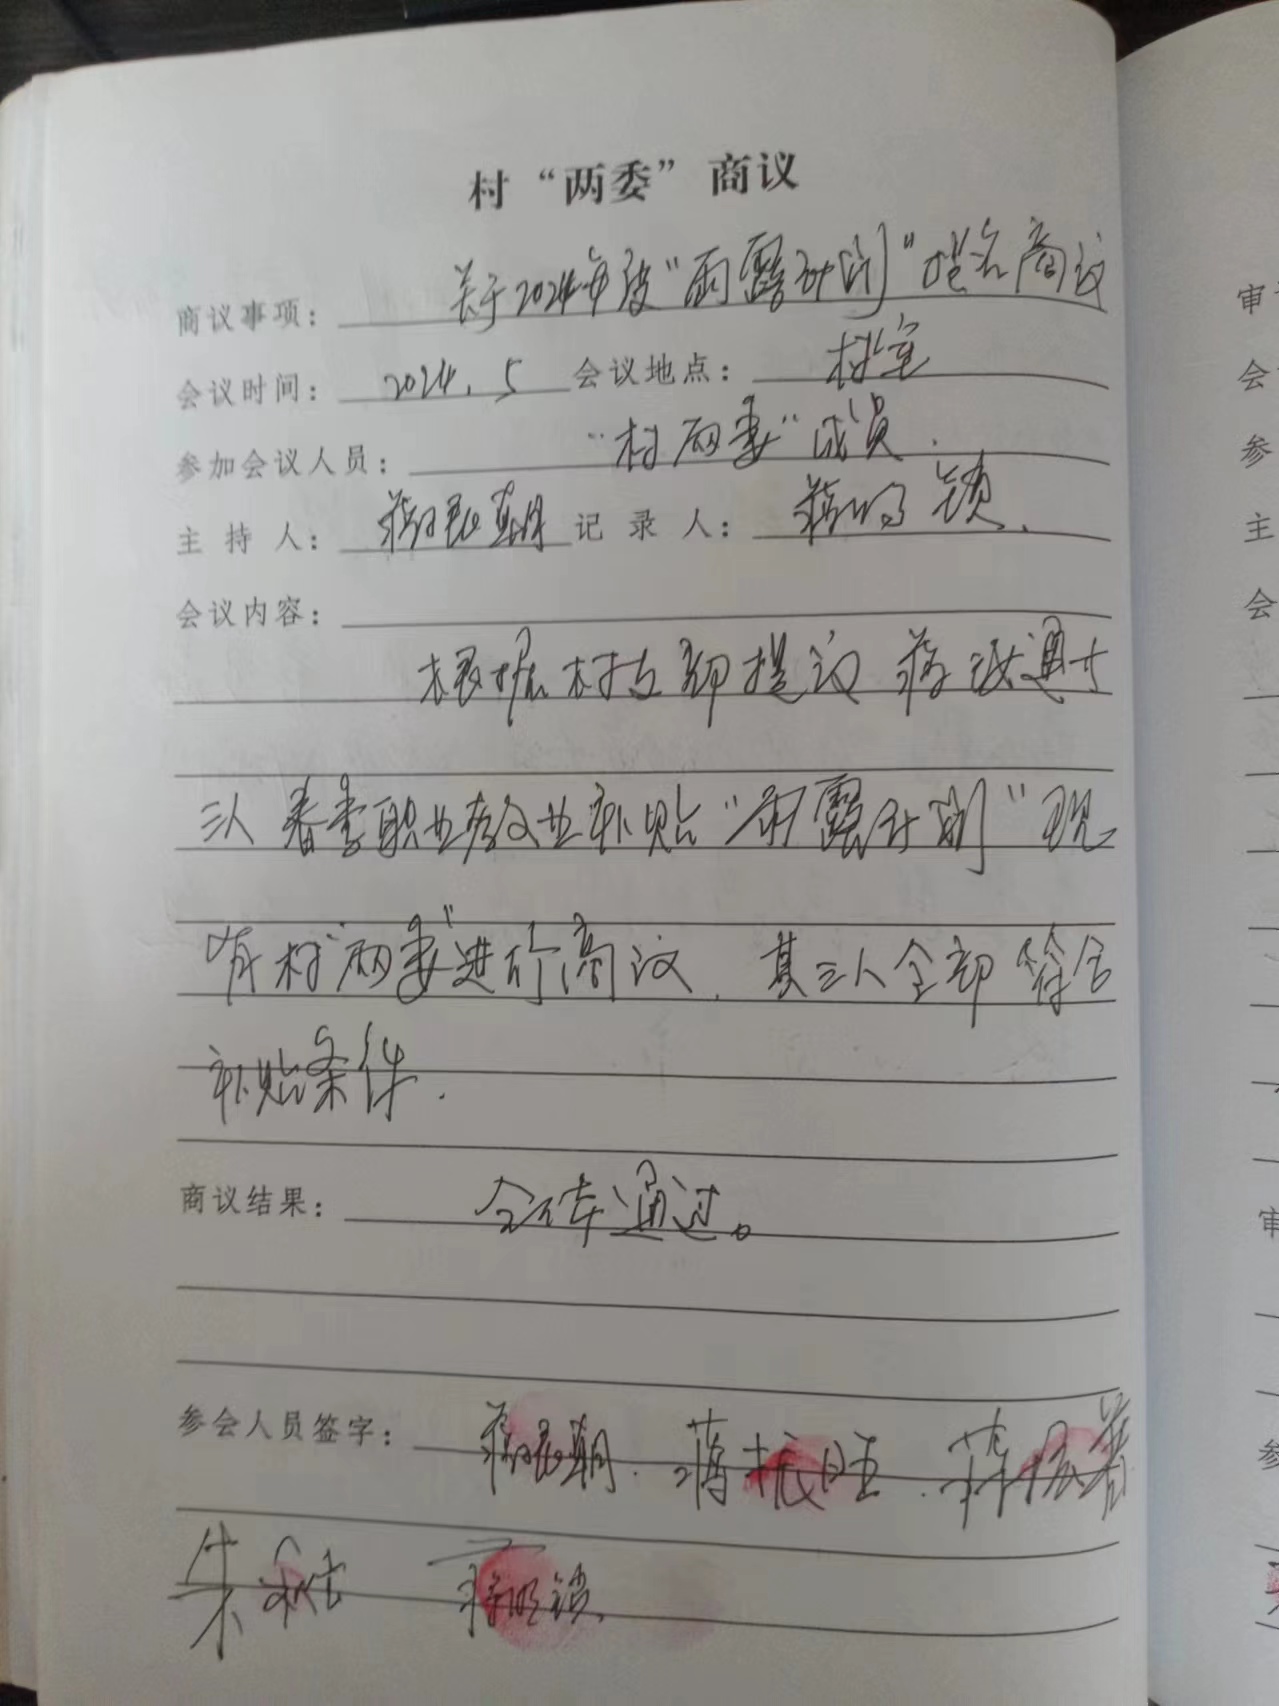 村“两委”商议
商议事项：关于2024年度“雨露计划”提名商议
会议时间：2024.5 会议地点：村室
参加会议人员：“村两委”成员.
主持人：蒋 朝 记录人：蒋明锁.
会议内容：
根据村支部提议 蒋 通 
三人春季职业教 补贴“雨露计划”现
有村“两委”进行商议. 其三人全部符合
补贴条件.
商议结果：全体通过。
参会人员签字：蒋 朝. 蒋振旺. 蒋振 
朱 蒋明锁.
审
会
参
主
会
审
参